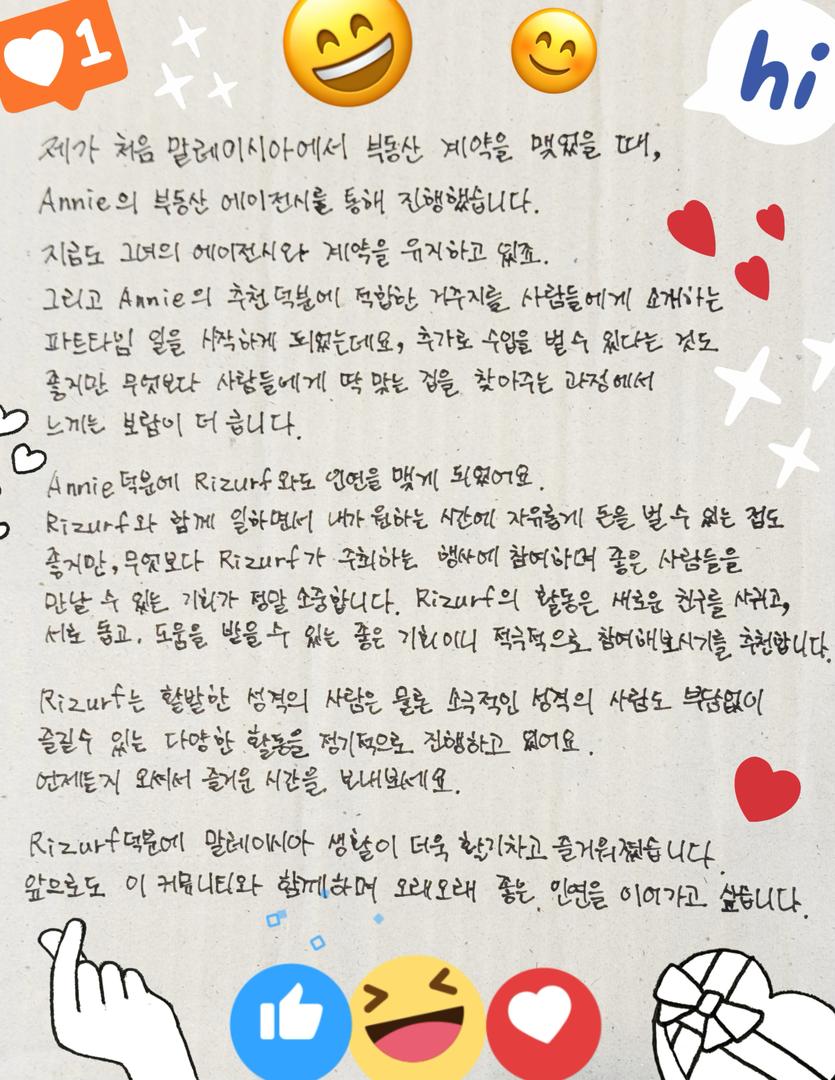 1
hi
제가 처음 말레이시아에서 부동산 계약을 맺었을 때,
Annie의 부동산 에이전시를 통해 진행했습니다.
지금도 그녀의 에이전시와 계약을 유지하고 있죠.
그리고 Annie의 추천 덕분에 적합한 거주지를 사람들에게 소개하는
파트타임 일을 시작하게 되었는데요, 추가로 수입을 벌 수 있다는 것도
좋지만 무엇보다 사람들에게 딱 맞는 집을 찾아주는 과정에서
느끼는 보람이 더 큽니다.
Annie 덕분에 Rizurf와도 인연을 맺게 되었어요.
Rizurf와 함께 일하면서 내가 원하는 시간에 자유롭게 돈을 벌 수 있는 점도
좋지만, 무엇보다 Rizurf가 주최하는 행사에 참여하며 좋은 사람들을
만날 수 있는 기회가 정말 소중합니다. Rizurf의 활동은 새로운 친구를 사귀고,
서로 돕고, 도움을 받을 수 있는 좋은 기회이니 적극적으로 참여해보시기를 추천합니다.
Rizurf는 활발한 성격의 사람은 물론 소극적인 성격의 사람도 부담없이
즐길 수 있는 다양한 활동을 정기적으로 진행하고 있어요.
언제든지 오셔서 즐거운 시간을 보내보세요.
Rizurf덕분에 말레이시아 생활이 더욱 활기차고 즐거워졌습니다.
앞으로도 이 커뮤니티와 함께하며 오래오래 좋은 인연을 이어가고 싶습니다.